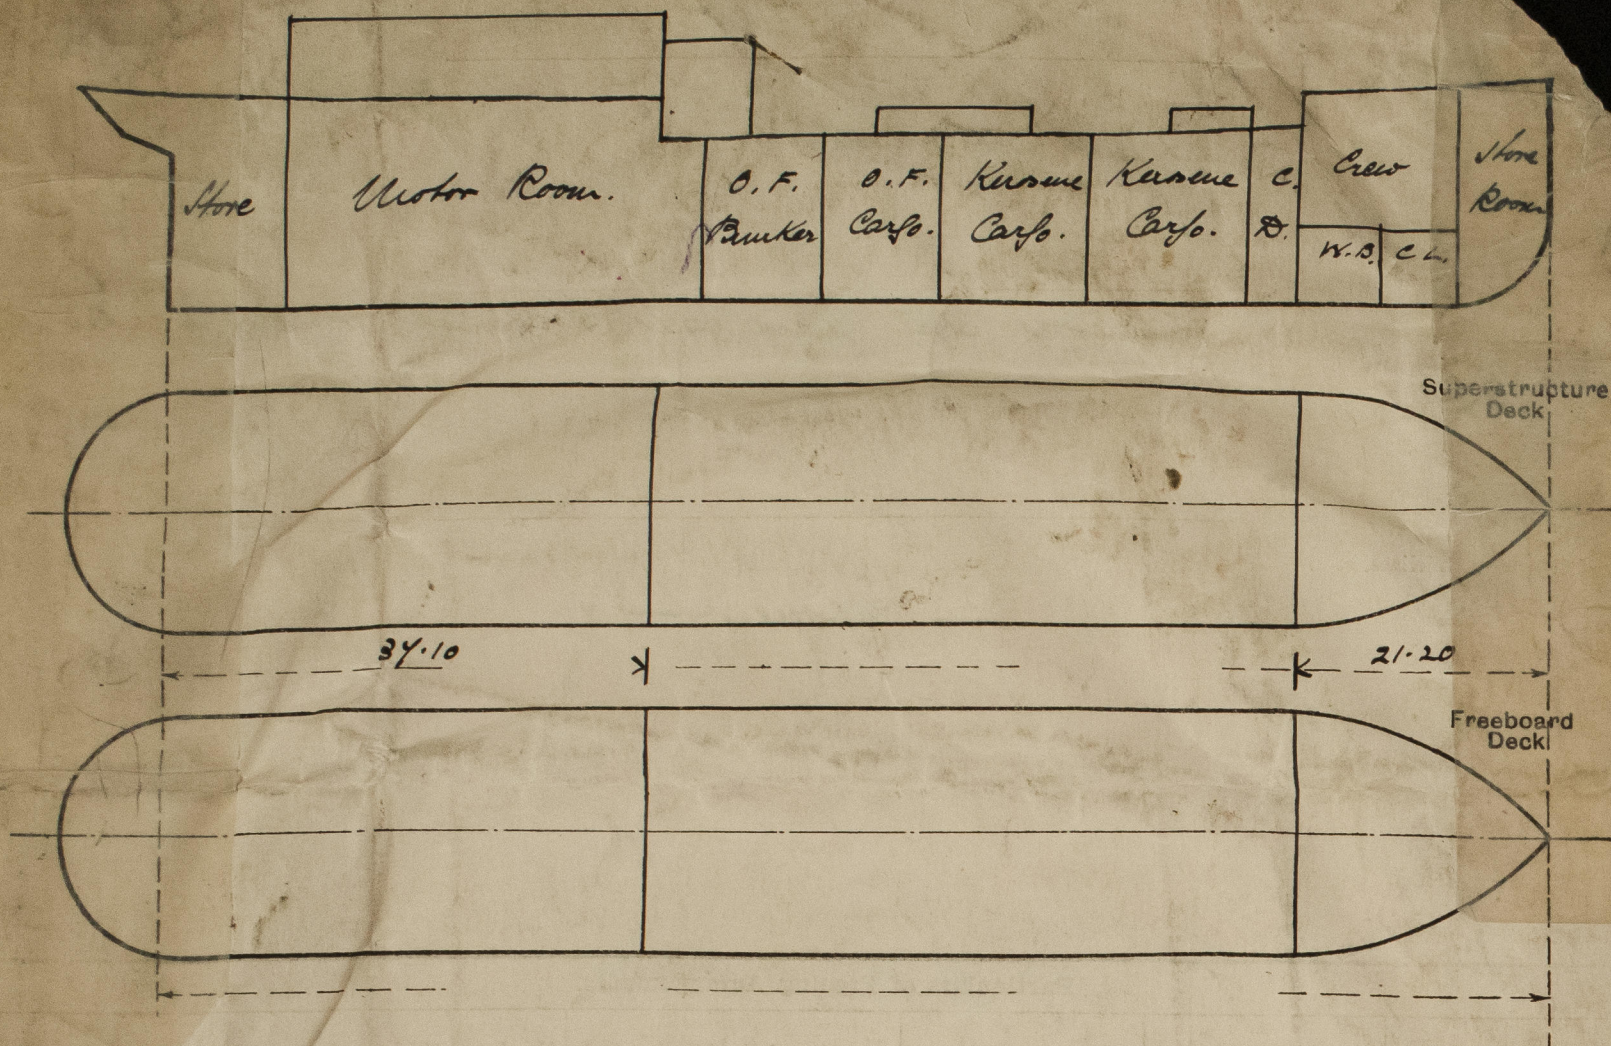 Store
Motor Room.
O. F.
Bunker
O. F.
Cargo.
Kerosene
Cargo.
Kerosene
Cargo.
C.
D.
Crew
W.B.
C L.
Store
Room
Superstructure
Deck
37.10
21.20
Freeboard
Deck